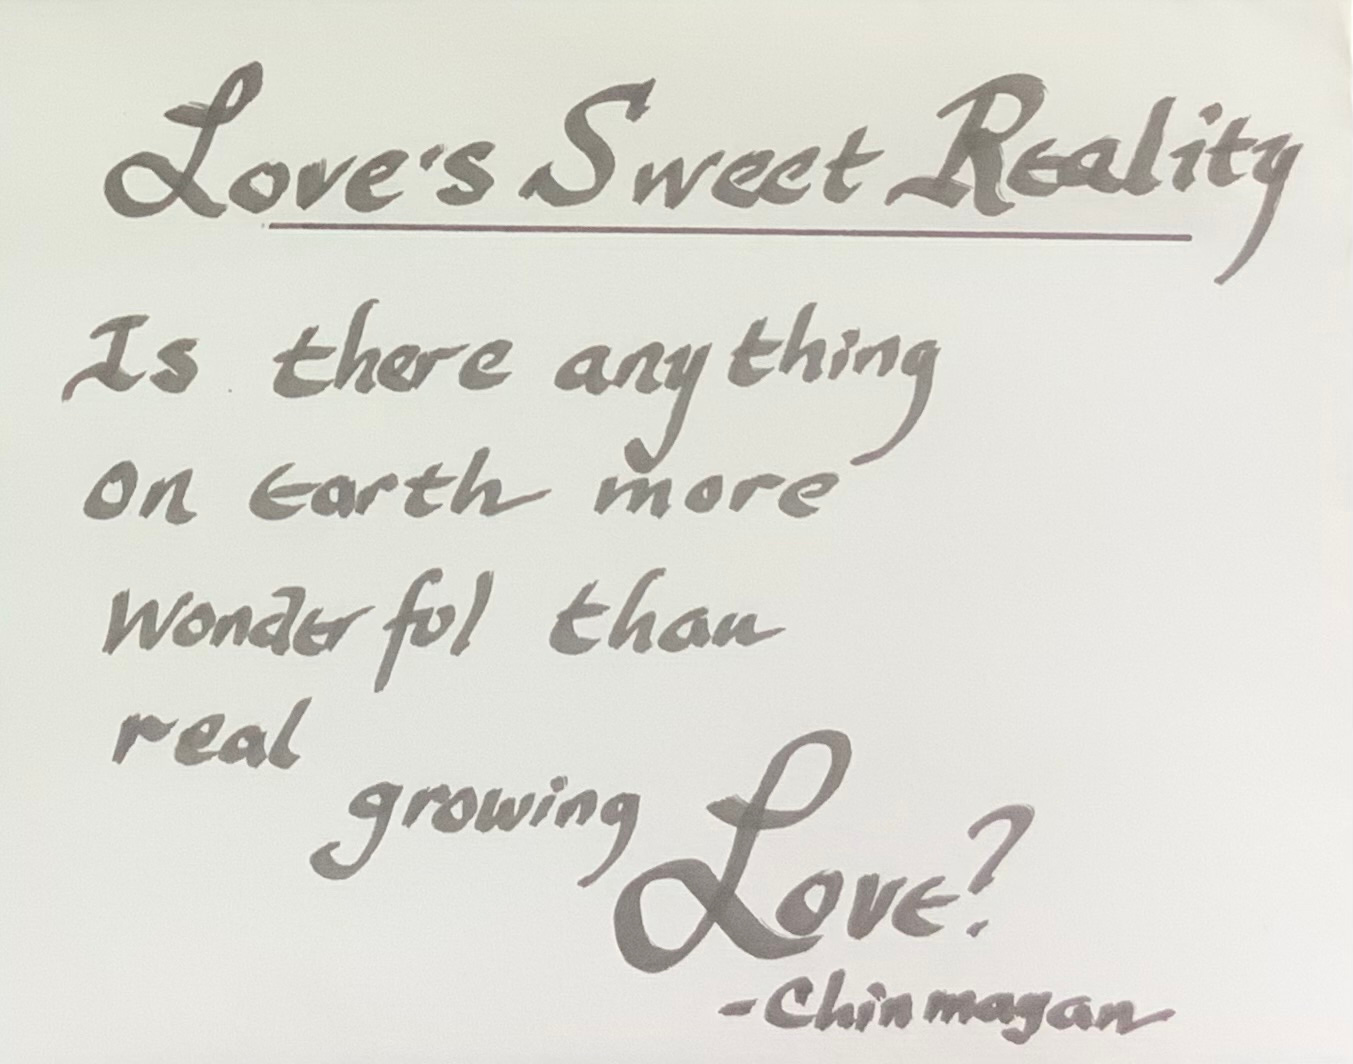 Love's Sweet Reality
Is there anything
on Earth more
Wonderful than
real
growing Love?
-Chinmayan